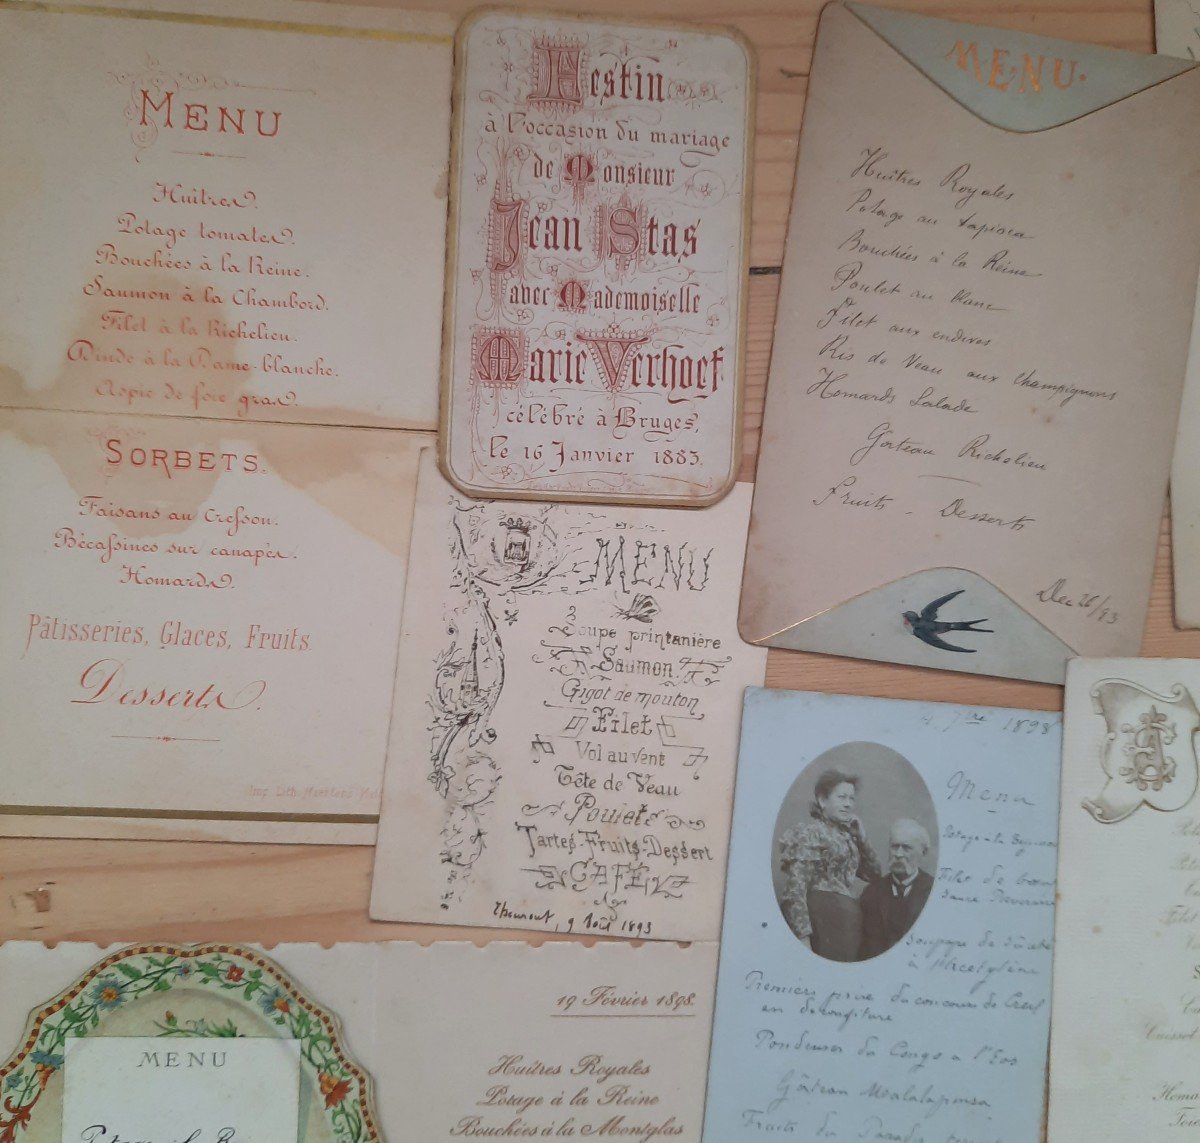 MENU
Huîtres.
Potage tomates.
Bouchées à la Reine.
Saumon à la Chambord.
Filet à la Richelieu.
Dinde à la Dame-blanche.
Aspic de foie gras.
SORBETS.
Faisans au Cresson.
Bécassines sur canapés.
Homards.
Pâtisseries, Glaces, Fruits.
Desserts.
Imp. Lith.
Festin
à l'occasion du mariage
de Monsieur
Jean Stas
avec Mademoiselle
Marie Verhoef
célébré à Bruges,
le 16 Janvier 1883.
MENU
Huîtres Royales
Potage au tapioca
Bouchées à la Reine
Poulet au blanc
Filet aux endives
Ris de Veau aux Champignons
Homards Salade
Gateau Richelieu
Fruits - Desserts
Dec 26/93
MENU
Soupe printanière
Saumon
Gigot de mouton
Filet
Vol au vent
Tête de Veau
Poulets
Tartes-Fruits-Dessert
CAFÉ
9 Août 1893
7bre 1898
Menu
Potage
Filet de boeuf
sauce
Soupape de sûreté
à l'Acétylène
Premiers prix du concours de
en
du Congo
Gâteau
Fruits du Paradis
19 Février 1898.
Huîtres Royales
Potage à la Reine
Bouchées à la Montglas
MENU